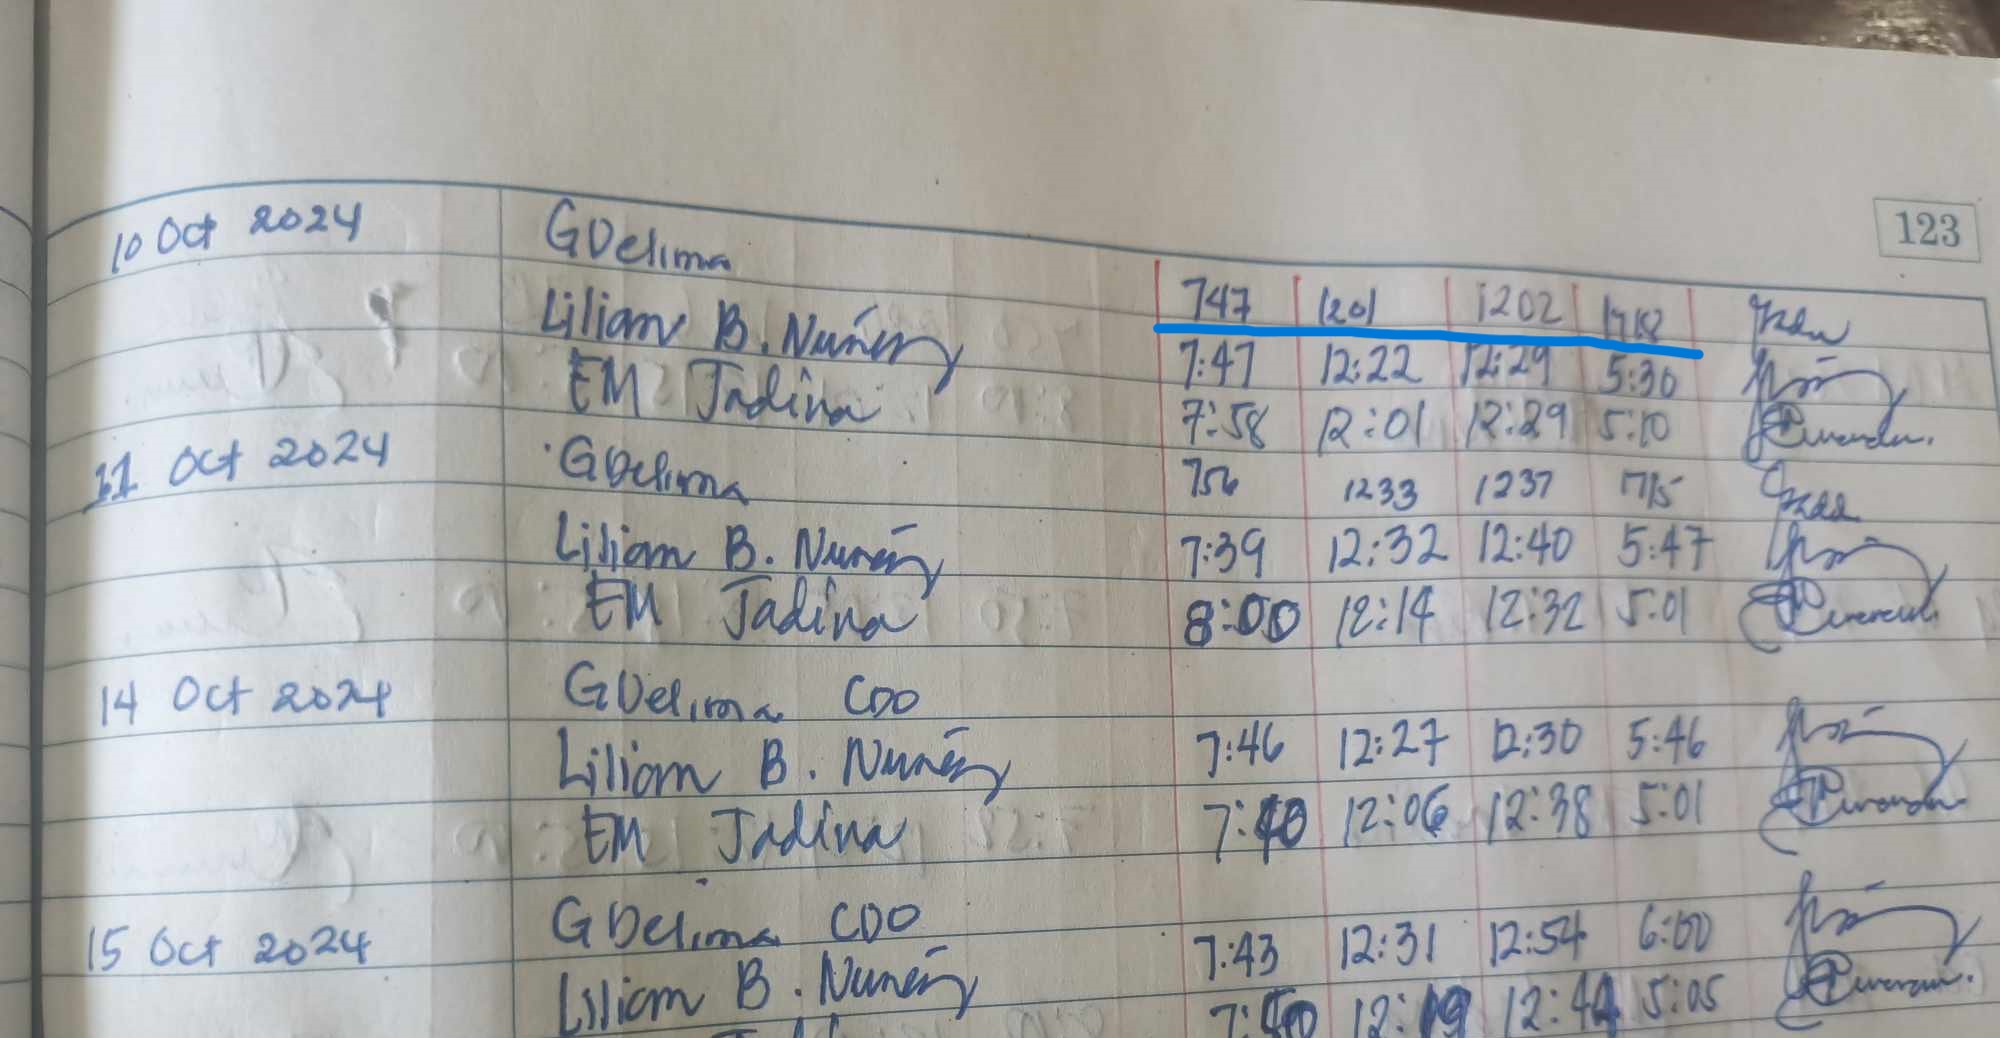 123
10 Oct 2024 GDelima 747 1201 1202 1718
Lilian B. Nuñez 7:47 12:22 12:29 5:30
EM Jadina 7:58 12:01 12:29 5:10
11 Oct 2024 GDelima 756 1233 1237 1715
Lilian B. Nuñez 7:39 12:32 12:40 5:47
EM Jadina 8:00 12:14 12:32 5:01
14 Oct 2024 GDelima CDO
Lilian B. Nuñez 7:46 12:27 12:30 5:46
EM Jadina 7:40 12:06 12:38 5:01
15 Oct 2024 GDelima CDO
Lilian B. Nuñez 7:43 12:31 12:54 6:00
Jadina 12:19 12:44 5:05